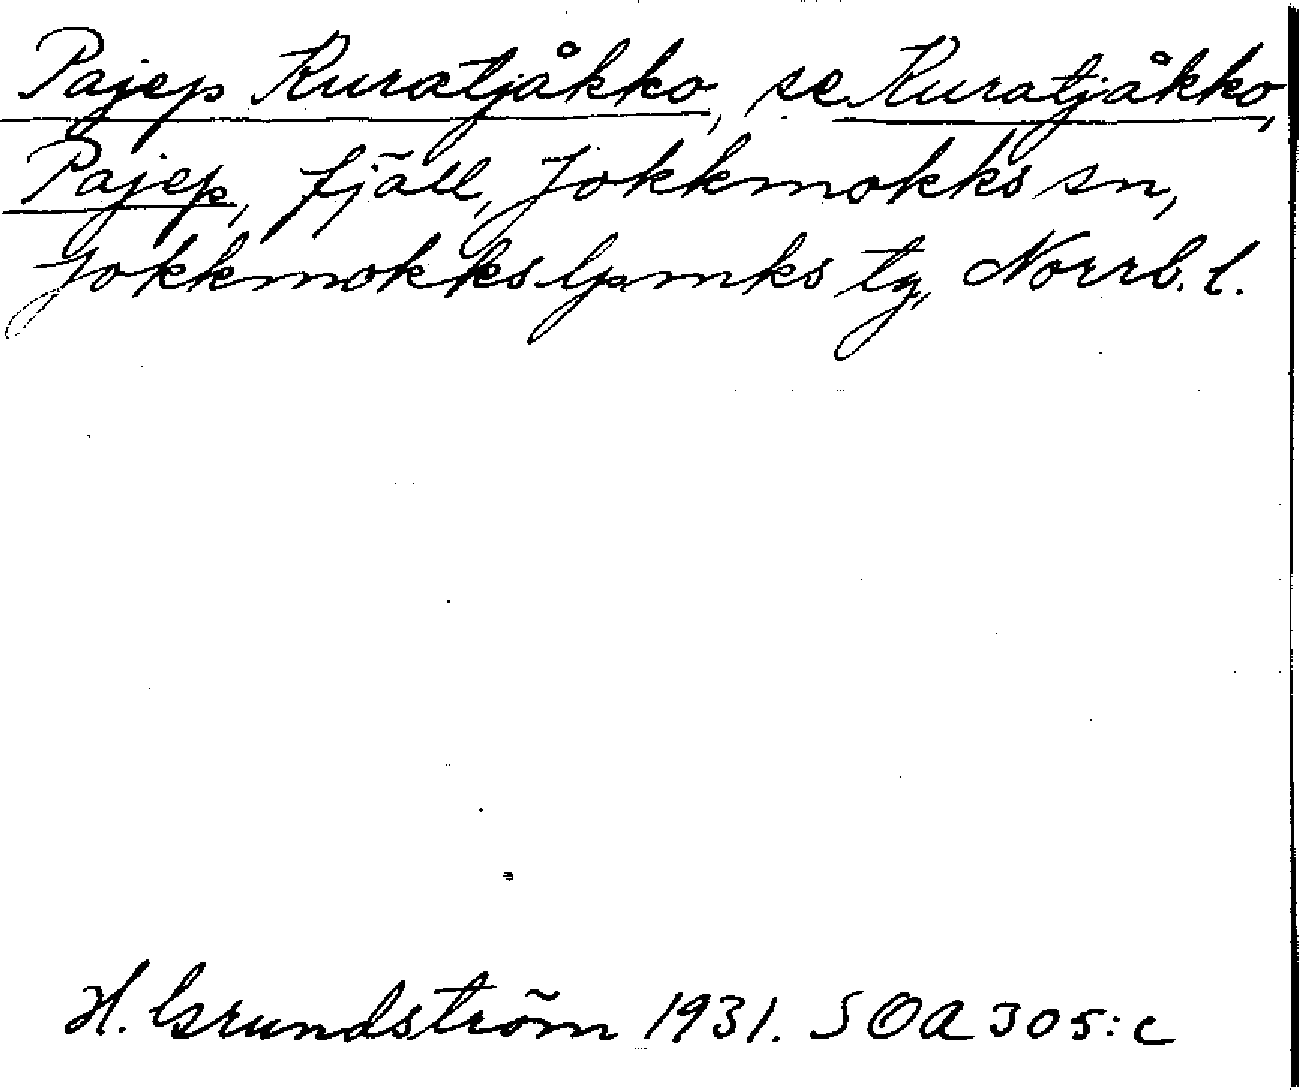 Pajep Kuratjåkko, se Kuratjåkko,
Pajep, fjäll, Jokkmokks sn,
Jokkmokks lpmks tg, Norrb. l.
H. Grundström 1931. SOA 305:c